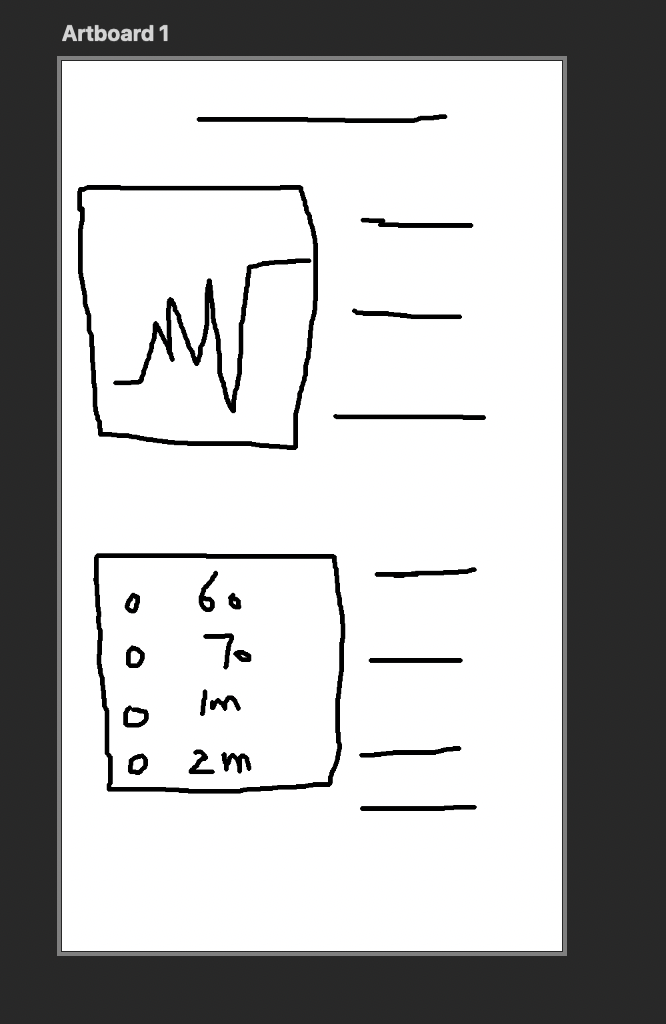 Artboard 1
60
70
1m
2m